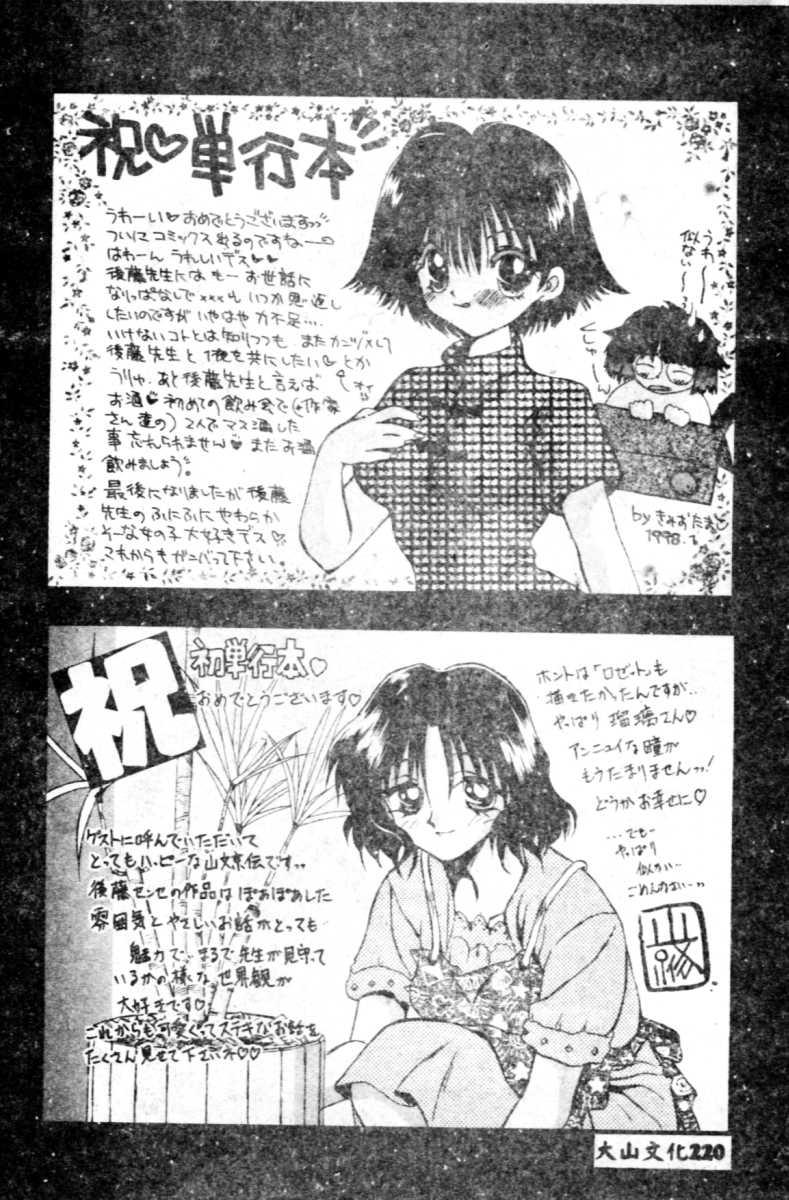 祝♡単行本
うわーい♡おめでとうございますっっ
ついにコミックス出るのですねー
はわーん うれしいデス♡♡
後藤先生には もー お世話に
なりっぱなしで×××も いつか恩返し
したいのですが いやはや 力不足…
いけないコトとは知りつつも また
後藤先生と1夜を共にしたい♡とか
うりゃ。あと後藤先生と言えば
お酒♡初めての飲み会で(作家
さん達の)2人でマス酒した
事忘れられません♡またお酒
飲みましょう。
最後になりましたが後藤
先生のふにふにやわらか
そーな女の子大好きデス♡
これからもがんばって下さい。
うわ〜
似ない〜
by きみおたまこ
1998.
祝
初単行本♡
おめでとうございます♡
ホントは「ロゼット」も
描きたかったんですが…
やっぱり 瑠璃さん♡
アンニュイな瞳が
もうたまりませんっっ!
どうかお幸せに♡
…でもー
やっぱり
似ない…
ごめんなさいーっっ
ゲストに呼んでいただいて
とってもハッピーな山文京伝ですっっ
後藤センセの作品は ぽあぽあした
雰囲気と やさしいお話がとっても
魅力で… まるで先生が見守って
いるかの様な 世界観が
大好きです♡
これからも可愛くってステキなお話を
たくさん見せて下さいネ♡♡
大山文化220